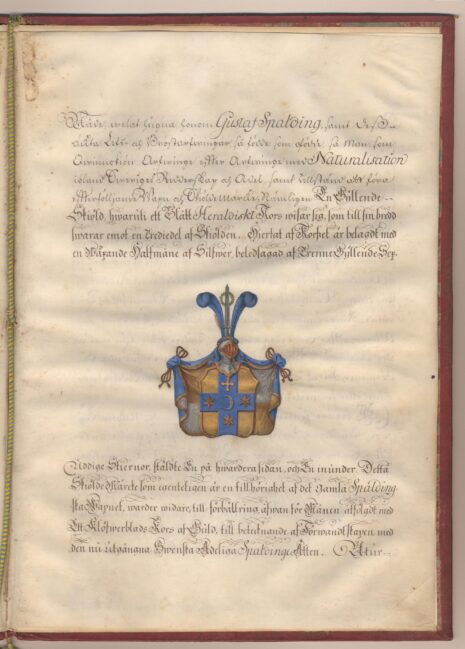 Nåde, welat hugna honom Gustaf Spalding, samt De߃
ächta Lifs- och Bröstarfwingar, så födde som ofödde, så Man som
Qwinnkön Arfwinge efter Arfwinge med Naturalisation
ibland Sweriges Ridderskap och Adel, samt tillstånd at föra
efterföljande Wapn och Skiöldemärke, Nämligen En Gyllende
Skiöld, hwaruti ett Blått Heraldiskt Kors wisar sig, som till sin bredd
swarar emot en trediedel af Skiölden. Hiertat af Korset är belagdt med
en Wäxande Halfmåne af Silfwer, beledsagad af Trenne Gyllende Sex-
Uddige Stiernor, stäldte En på hwardera sidan, och En inunder. Detta
Skiöldemärke som egenteligen är en tillhörighet af det Gamla Spalding
ska Wapnet, warder widare, till förbättring, åfwan för Månen
med
Ett Klöfwerblads Kors af Guld, till betecknande af Förwandtskapen med
den nu utgångna Swenska Adeliga Spaldings Ätten.